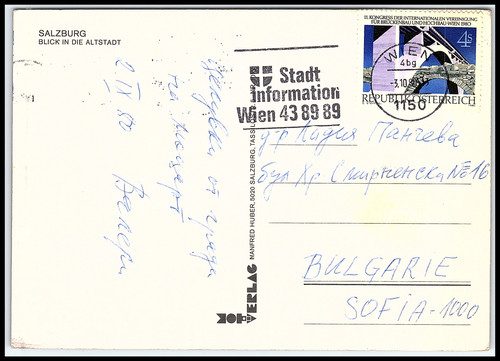 SALZBURG
BLICK IN DIE ALTSTADT
11. KONGRESS DER INTERNATIONALEN VEREINIGUNG
FÜR BRÜCKENBAU UND HOCHBAU · WIEN 1980
4s
REPUBLIK ÖSTERREICH
WIEN
4bg
-3.10.80
1150
Stadt
Information
Wien 43 89 89
от града
на Моцарт
2 IX 80
Валери
VERLAG
MANFRED HUBER, 5020 SALZBURG,
д-р Лидия Панчева
бул Хр Смирненски №16
BULGARIE
SOFIA-1000